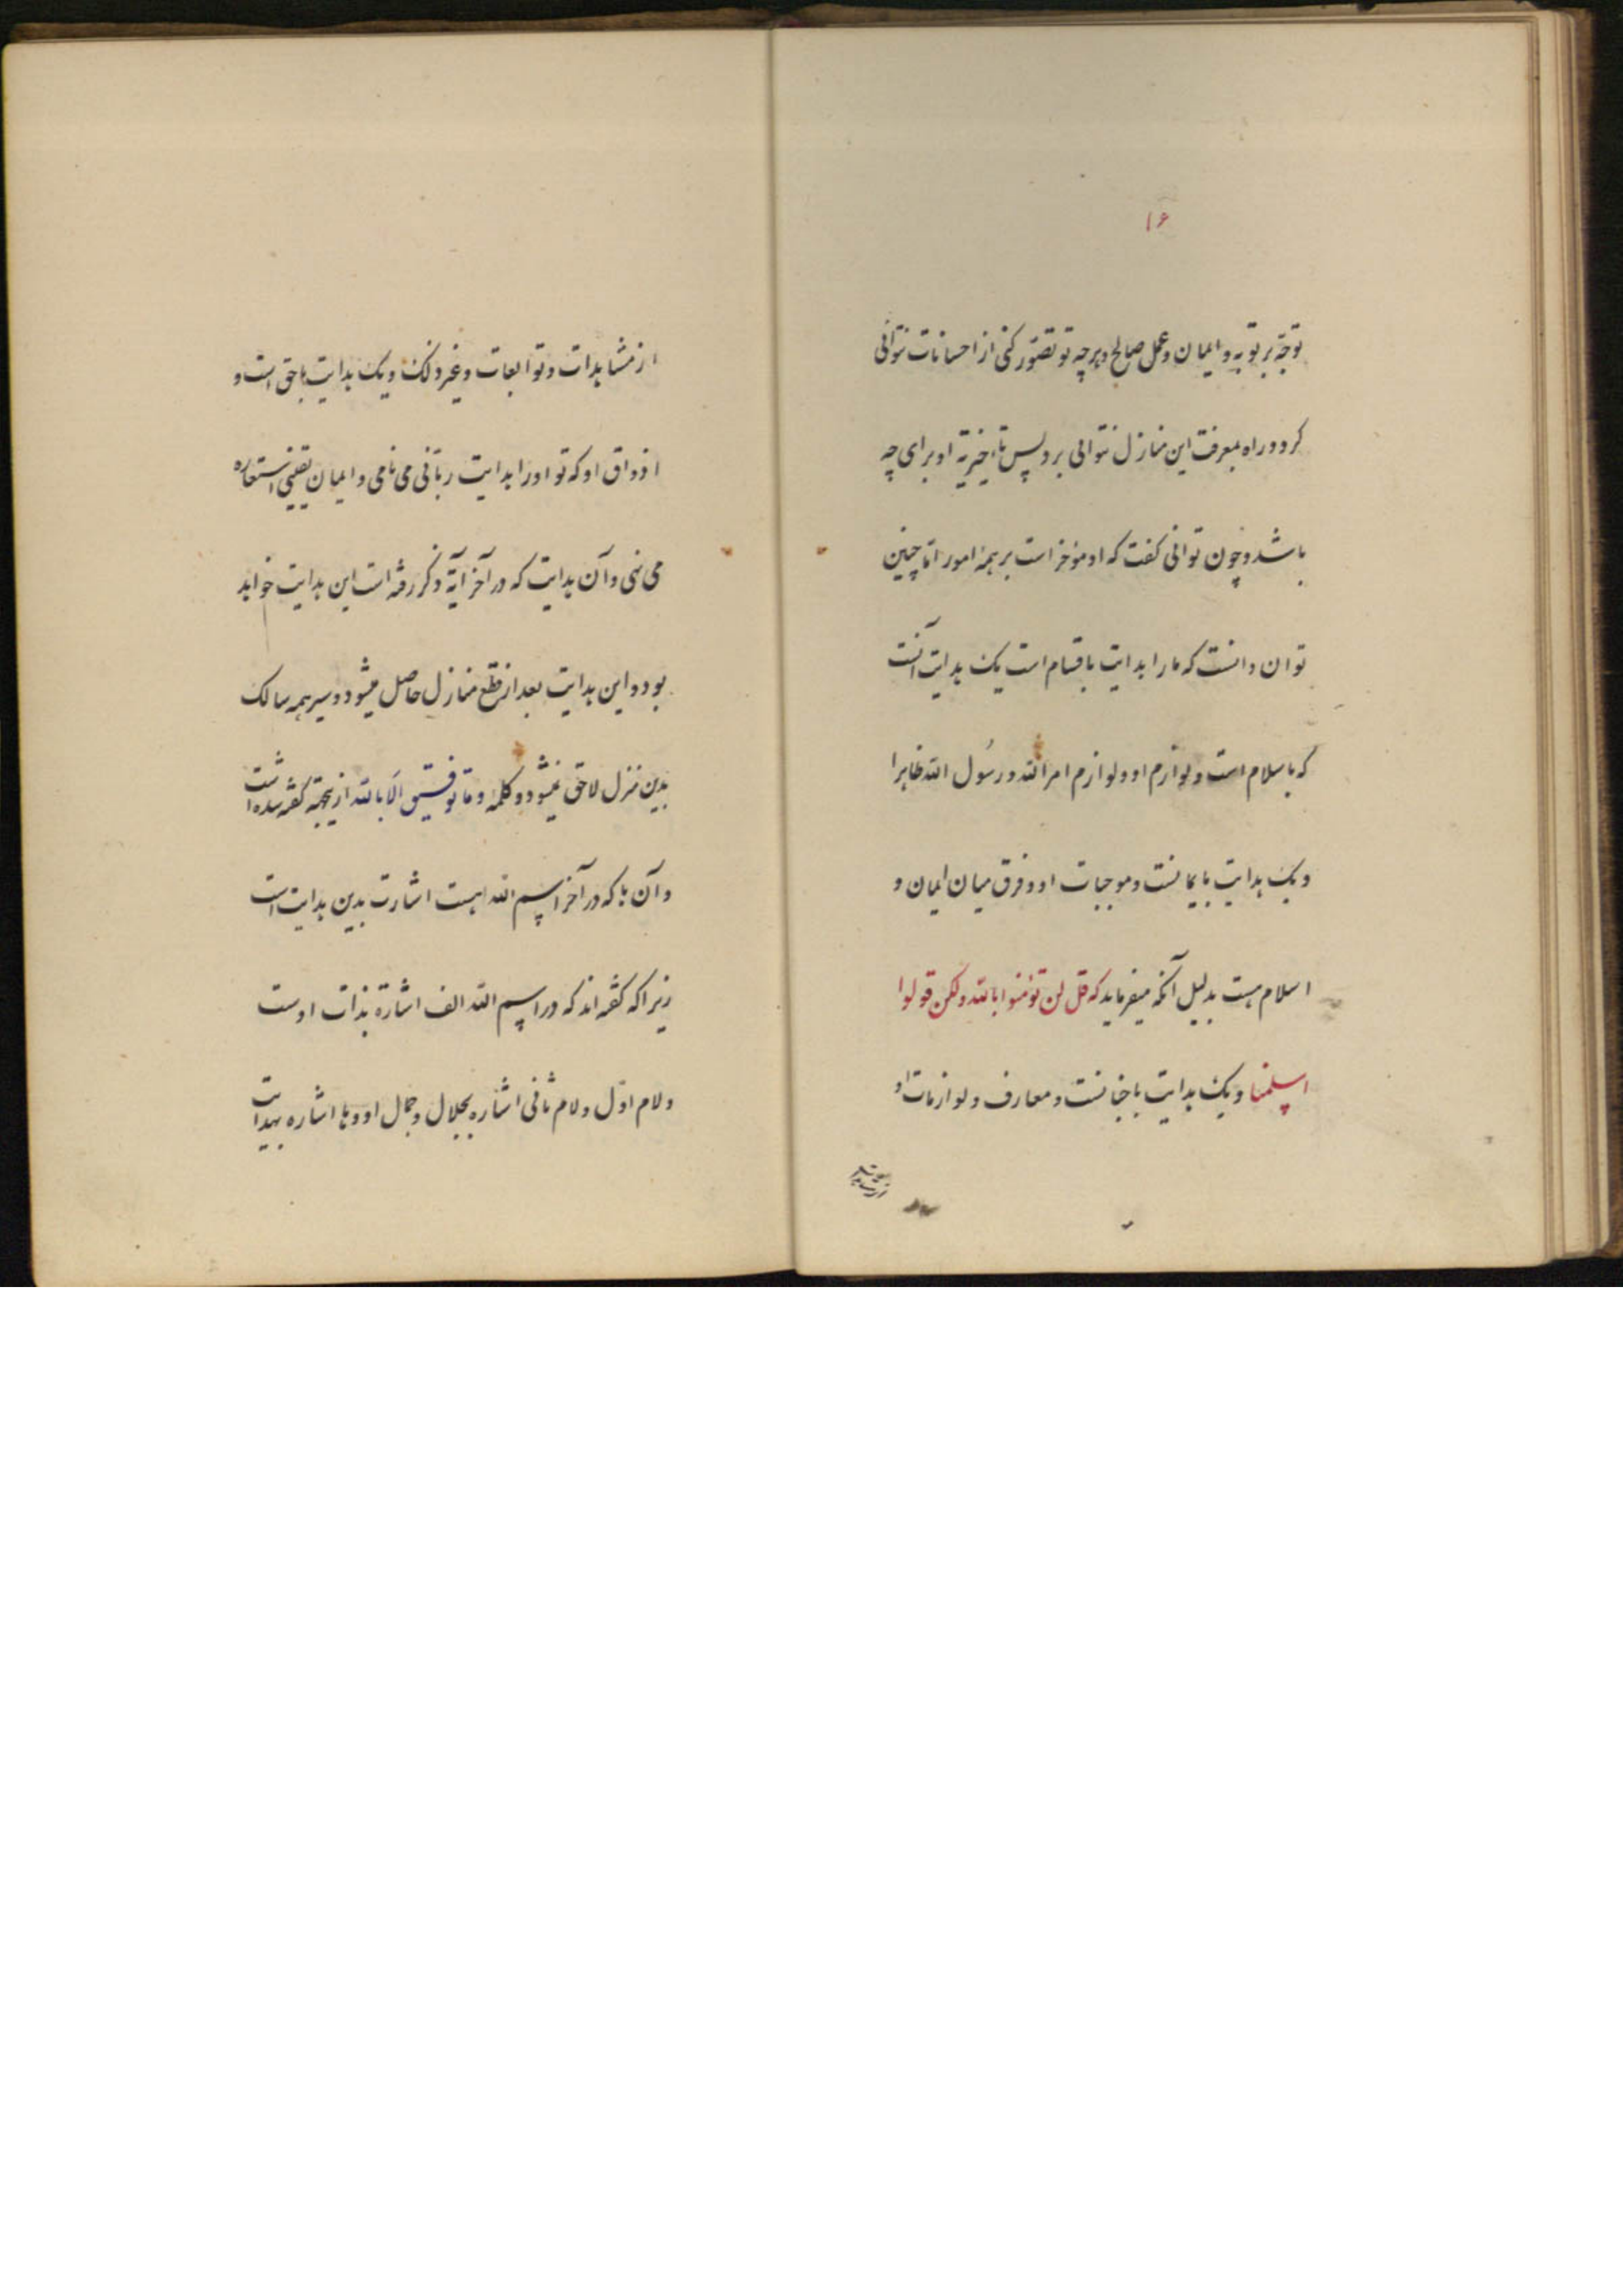 ۱۶
توجه بر توبه و ایمان و عمل صالح و هرچه تو تصور کنی از احسانات نتوانی
کرد و راه بمعرفت این منازل نتوانی برد پس تأخیریه او برای چه
باشد و چون توانی گفت که او مؤخر است بر همه امور اما چنین
توان دانست که ما را هدایت باقسام است یک هدایت آنست
که باسلام است و لوازم او و لوازم امر الله و رسول الله ظاهرا
و یک هدایت بایمانست و موجبات او و فرق میان ایمان و
اسلام هست بدلیل آنکه میفرماید که قل لن تؤمنوا بالله ولکن قولوا
اسلمنا و یک هدایت باخانست و معارف و لوازمات او
از مشاهدات و توابعات و غیر ذلک و یک هدایت باحق است و
اذواق او که تو او را هدایت ربانی می نامی و ایمان یقینی استعاره
می نهی و آن هدایت که در آخر آیة ذکر رفته است این هدایت خواهد
بود و این هدایت بعد از قطع منازل حاصل میشود و سیر همه سالک
بدین منزل لاحق نمیشود و کلمه و ما توفیقی الا بالله ازینجهة گفته شده است
و آن ها که در آخر اسم الله هست اشارت بدین هدایت است
زیرا که گفته اند که در اسم الله الف اشارة بذات اوست
و لام اول و لام ثانی اشاره بجلال و جمال او و ها اشاره بهدایت